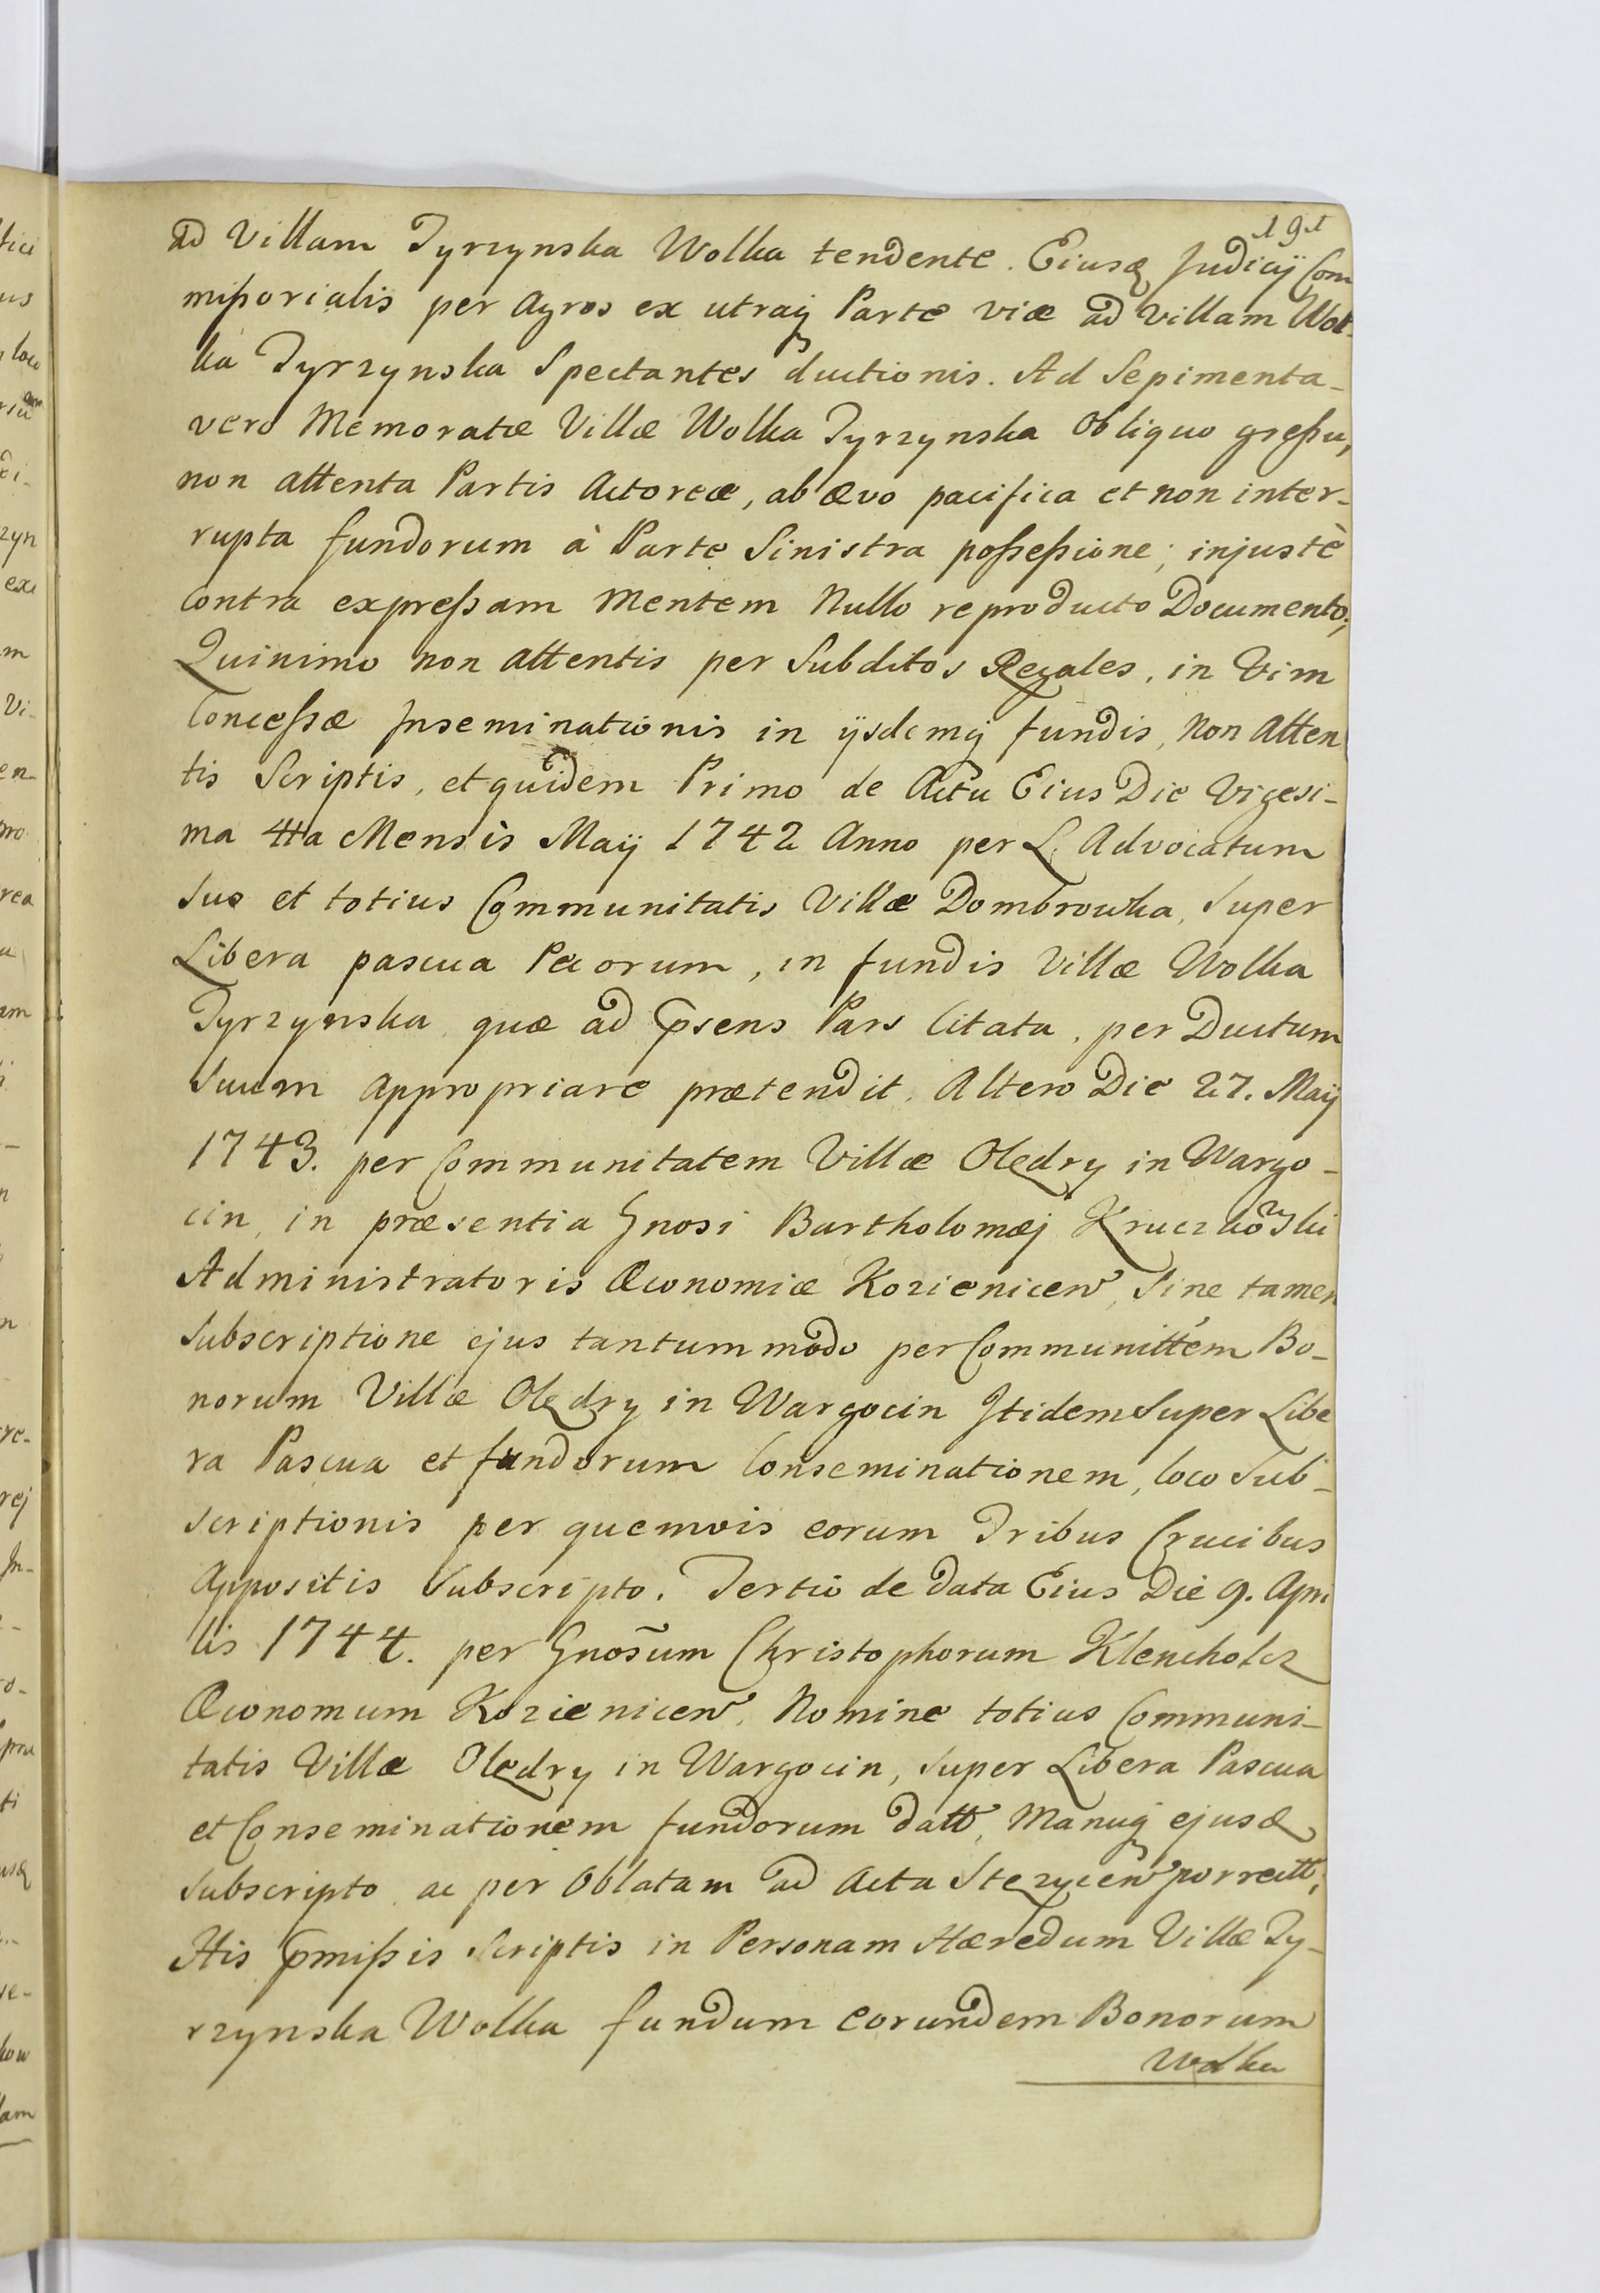 191
ad Villam Tyrzynska Wolka tendente. Eiusq Judicij Com
missorialis per Agros ex utraq Parte viæ ad villam Wol-
ka Tyrzynska Spectantes ductionis. Ad Sepimenta-
vero Memoratæ Villæ Wolka Tyrzynska Obliquo gressu,
non attenta Partis Actoreæ, ab ævo pacifica et non inter-
rupta fundorum à Parte Sinistra possessione; injustè
Contra expressam Mentem Nullo reproducto Documento;
Quinimo non attentis per Subditos Regales, in Vim
Concessæ Inseminationis in ijsdemq fundis, Non Atten
tis Scriptis, et quidem Primo de Actu Eius Die Vigesi-
ma 4ta Mensis Maij 1742 Anno per L. Advocatum
Suo et totius Communitatis Villæ Dombrowka, Super
Libera pascua Pecorum, in fundis Villæ Wolka
Tyrzynska quæ ad Psens Pars Citata, per Ductum
Suum Appropriare prætendit. Altero Die 27. Maij
1743. per Communitatem Villæ Olędry in Wargo-
cin, in præsentia Gnosi Bartholomæj Kruczkowski
Administratoris Œconomiæ Kozienicen, Sine tamen
Subscriptione ejus tantummodo per Communittem Bo-
norum Villæ Olędry in Wargocin Itidem Super Libe
ra Pascua et fundorum Conseminationem, loco Sub-
scriptionis per quemvis eorum Tribus Crucibus
Appositis Subscripto. Tertio de data Eius Die 9. Apri
lis 1744. per Gnosum Christophorum Klencholcz
Œconomum Kozienicen, Nomine totius Communi-
tatis Villæ Olędry in Wargocin, Super Libera Pascua
et Conseminationem fundorum datt, Manuq ejusd
Subscripto ac per Oblatam ad Acta Stezycen porrectt;
His Pmissis Scriptis in Personam Hæredum Villæ Ty-
rzynska Wolka fundum eorundem Bonorum
Wolka